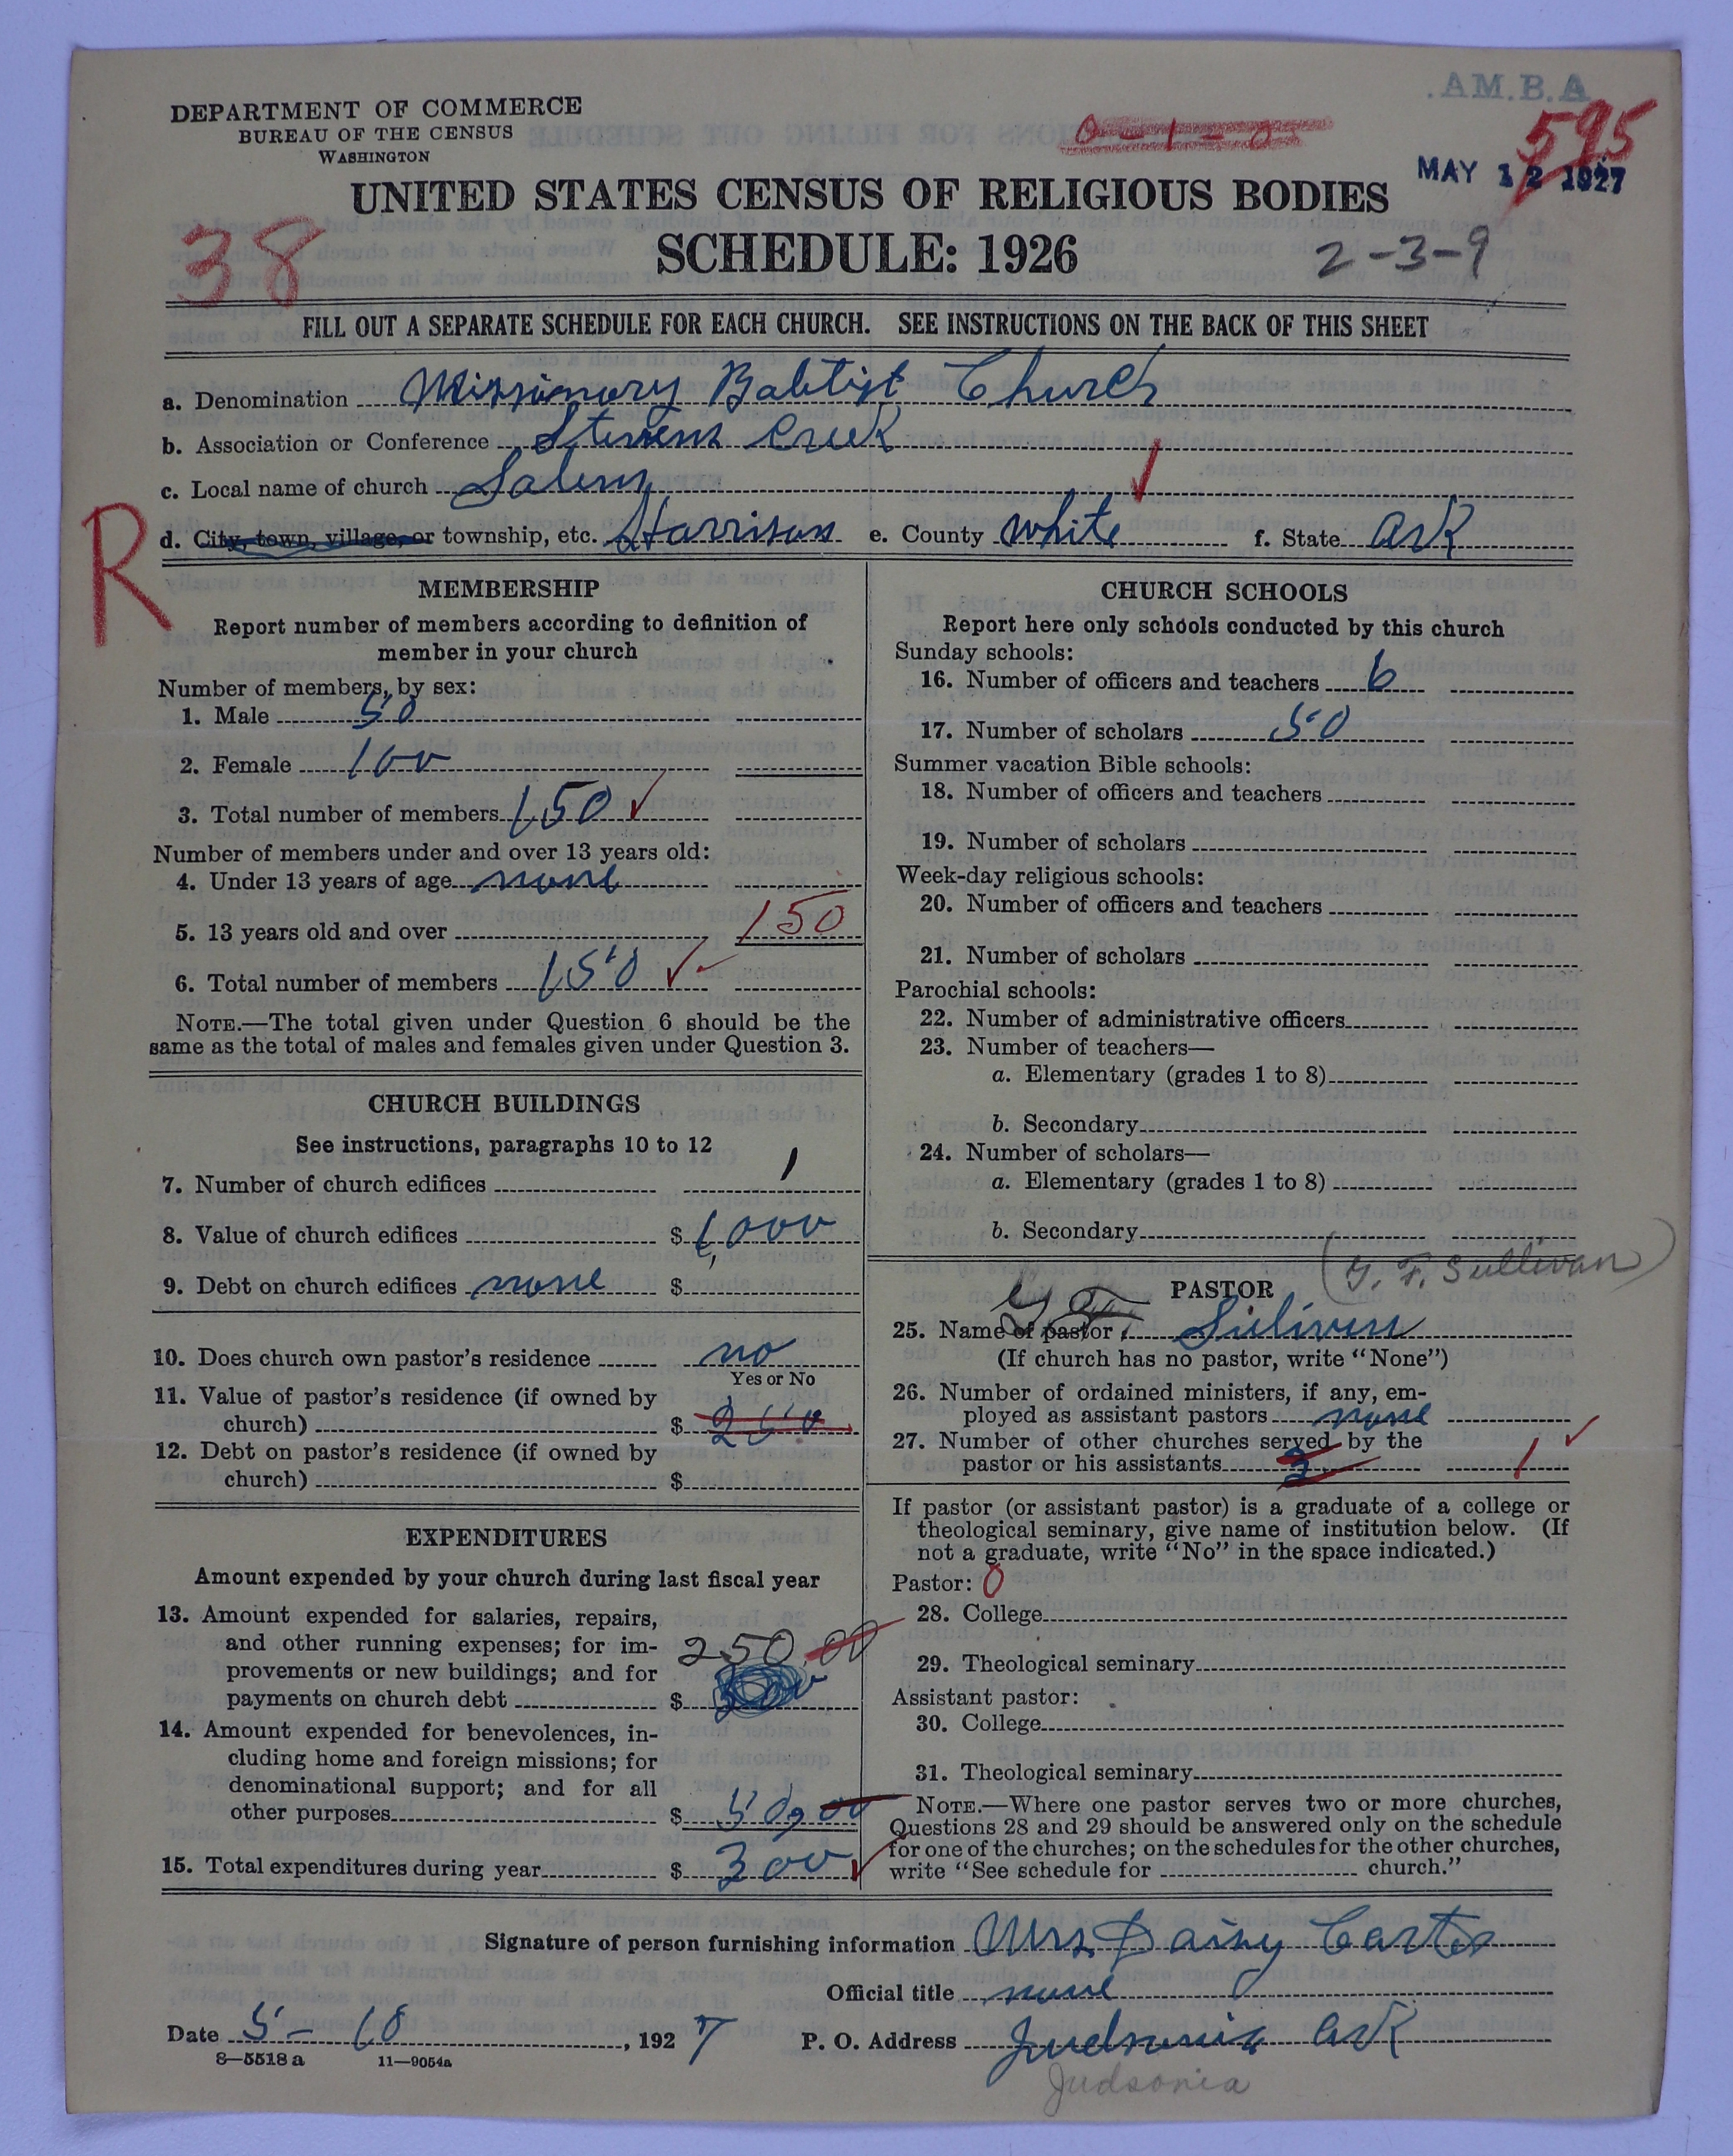 A.M.B.A.
DEPARTMENT OF COMMERCE
BUREAU OF THE CENSUS
WASHINGTON
0-1-0
595
MAY 12 1927
UNITED STATES CENSUS OF RELIGIOUS BODIES
SCHEDULE: 1926
38
2-3-9
FILL OUT A SEPARATE SCHEDULE FOR EACH CHURCH. SEE INSTRUCTIONS ON THE BACK OF THIS SHEET
a. Denomination Missionary Babtist Church
b. Association or Conference Stevens Creek
c. Local name of church Salem
R
d. City, town, village, or township, etc. Harrison e. County White f. State Ark
MEMBERSHIP
Report number of members according to definition of
member in your church
Number of members, by sex:
1. Male 50
2. Female 100
3. Total number of members 150 ✓
Number of members under and over 13 years old:
4. Under 13 years of age none
5. 13 years old and over 150
6. Total number of members 150 ✓
NOTE.—The total given under Question 6 should be the
same as the total of males and females given under Question 3.
CHURCH BUILDINGS
See instructions, paragraphs 10 to 12
7. Number of church edifices 1
8. Value of church edifices $ 1,000
9. Debt on church edifices none $
10. Does church own pastor's residence no
Yes or No
11. Value of pastor's residence (if owned by
church) $ 250
12. Debt on pastor's residence (if owned by
church) $
EXPENDITURES
Amount expended by your church during last fiscal year
13. Amount expended for salaries, repairs,
and other running expenses; for im-
provements or new buildings; and for
250.00
payments on church debt $
14. Amount expended for benevolences, in-
cluding home and foreign missions; for
denominational support; and for all
other purposes $ 50,00
15. Total expenditures during year $ 300 ✓
CHURCH SCHOOLS
Report here only schools conducted by this church
Sunday schools:
16. Number of officers and teachers 6
17. Number of scholars 50
Summer vacation Bible schools:
18. Number of officers and teachers
19. Number of scholars
Week-day religious schools:
20. Number of officers and teachers
21. Number of scholars
Parochial schools:
22. Number of administrative officers
23. Number of teachers—
a. Elementary (grades 1 to 8)
b. Secondary
24. Number of scholars—
a. Elementary (grades 1 to 8)
b. Secondary
(G. F. Sullivan)
PASTOR
25. Name of pastor G F Sulivin
(If church has no pastor, write "None")
26. Number of ordained ministers, if any, em-
ployed as assistant pastors none
27. Number of other churches served by the
pastor or his assistants 3 1 ✓
If pastor (or assistant pastor) is a graduate of a college or
theological seminary, give name of institution below. (If
not a graduate, write "No" in the space indicated.)
Pastor: 0
28. College
29. Theological seminary
Assistant pastor:
30. College
31. Theological seminary
NOTE.—Where one pastor serves two or more churches,
Questions 28 and 29 should be answered only on the schedule
for one of the churches; on the schedules for the other churches,
write "See schedule for church."
Signature of person furnishing information Mrs Daisy Carter
Official title none
Date 5-10, 1927 P. O. Address Judsonia Ark
8—5518a 11—9054a
Judsonia